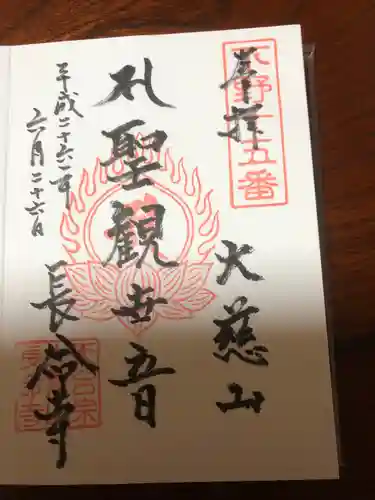 奉拝
五番
大慈山
聖観世音
長念寺
平成二十六年
六月二十六日